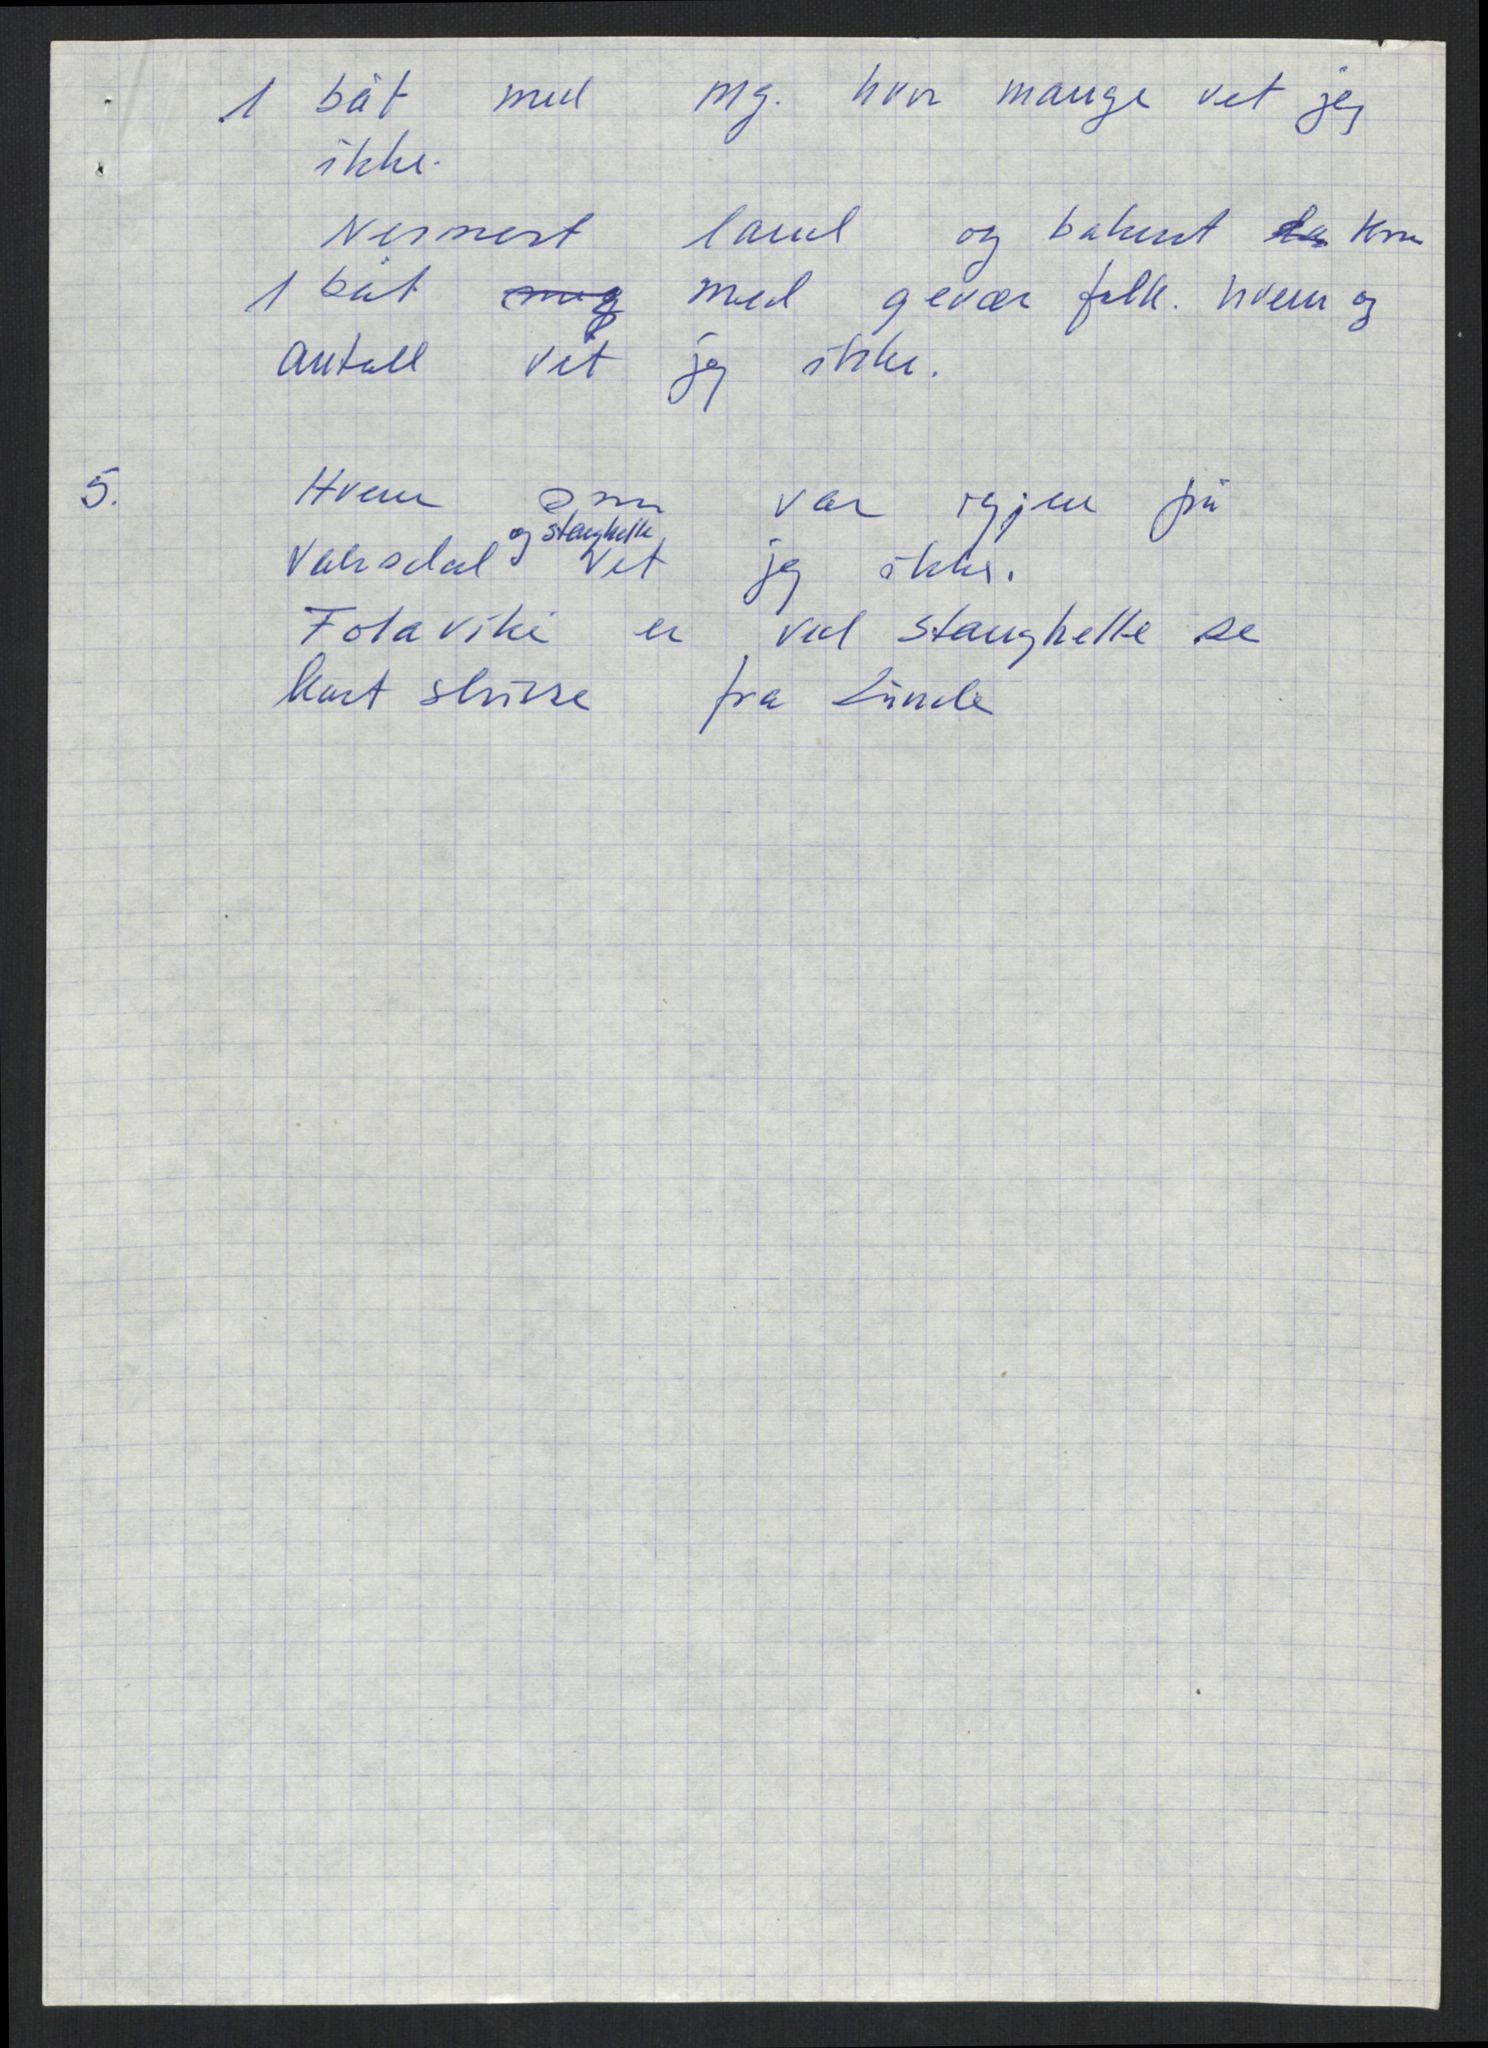 1 båt med mg. hvor mange vet jeg
ikke.
Nermest land og bakerst kom
1 båt med gevær folk. hvem og
antall vet jeg ikke.
5. Hvem som var igjen på
og stanghelle
Vaksdal vet jeg ikke.
Fotaviki er ved Stanghelle se
kart skisse fra Lunde